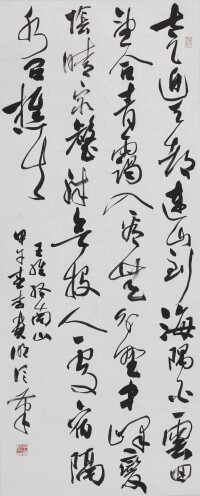 太乙近天都連山到海隅白雲回
望合青靄入看無分野中峰變
陰晴衆壑殊欲投人處宿隔
水問樵夫
王維終南山
甲午春